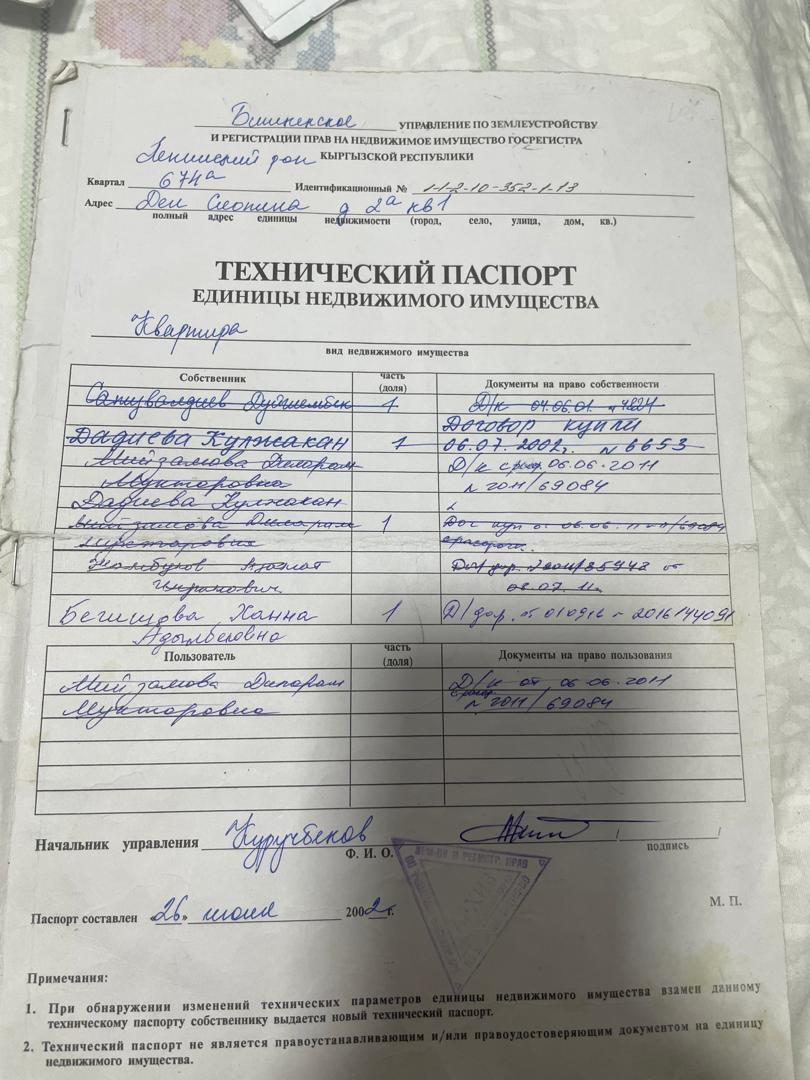 Бишкекское УПРАВЛЕНИЕ ПО ЗЕМЛЕУСТРОЙСТВУ
И РЕГИСТРАЦИИ ПРАВ НА НЕДВИЖИМОЕ ИМУЩЕСТВО ГОСРЕГИСТРА
КЫРГЫЗСКОЙ РЕСПУБЛИКИ
Квартал 674а Идентификационный № 1-1-2-10-352-1-13
Адрес д 2а кв 1
полный адрес единицы недвижимости (город, село, улица, дом, кв.)
ТЕХНИЧЕСКИЙ ПАСПОРТ
ЕДИНИЦЫ НЕДВИЖИМОГО ИМУЩЕСТВА
Квартира
вид недвижимого имущества
Собственник часть (доля) Документы на право собственности
1 Д/к 04.06.01. н 4824
Договор купли
Дадиева Кулжакан 1 06.07.2002г. н 6653
Мийзамова Дилорам Д/к 06.06.2011
Мукторовна н 2011/69084
Дадиева Кулжакан
Мийзамова 1
Азамат
08.07.11г.
Бегишова Ханна 1 Д/дар. от 010916 н 2016144091
Адылбековна
Пользователь часть (доля) Документы на право пользования
Мийзамова Дилорам Д/к от 06.06.2011
Мукторовна н 2011/69084
Начальник управления Куручбеков
Ф. И. О. подпись
Паспорт составлен «26» июля 2002г. М. П.
Примечания:
1. При обнаружении изменений технических параметров единицы недвижимого имущества взамен данному
техническому паспорту собственнику выдается новый технический паспорт.
2. Технический паспорт не является правоустанавливающим и/или правоудостоверяющим документом на единицу
недвижимого имущества.